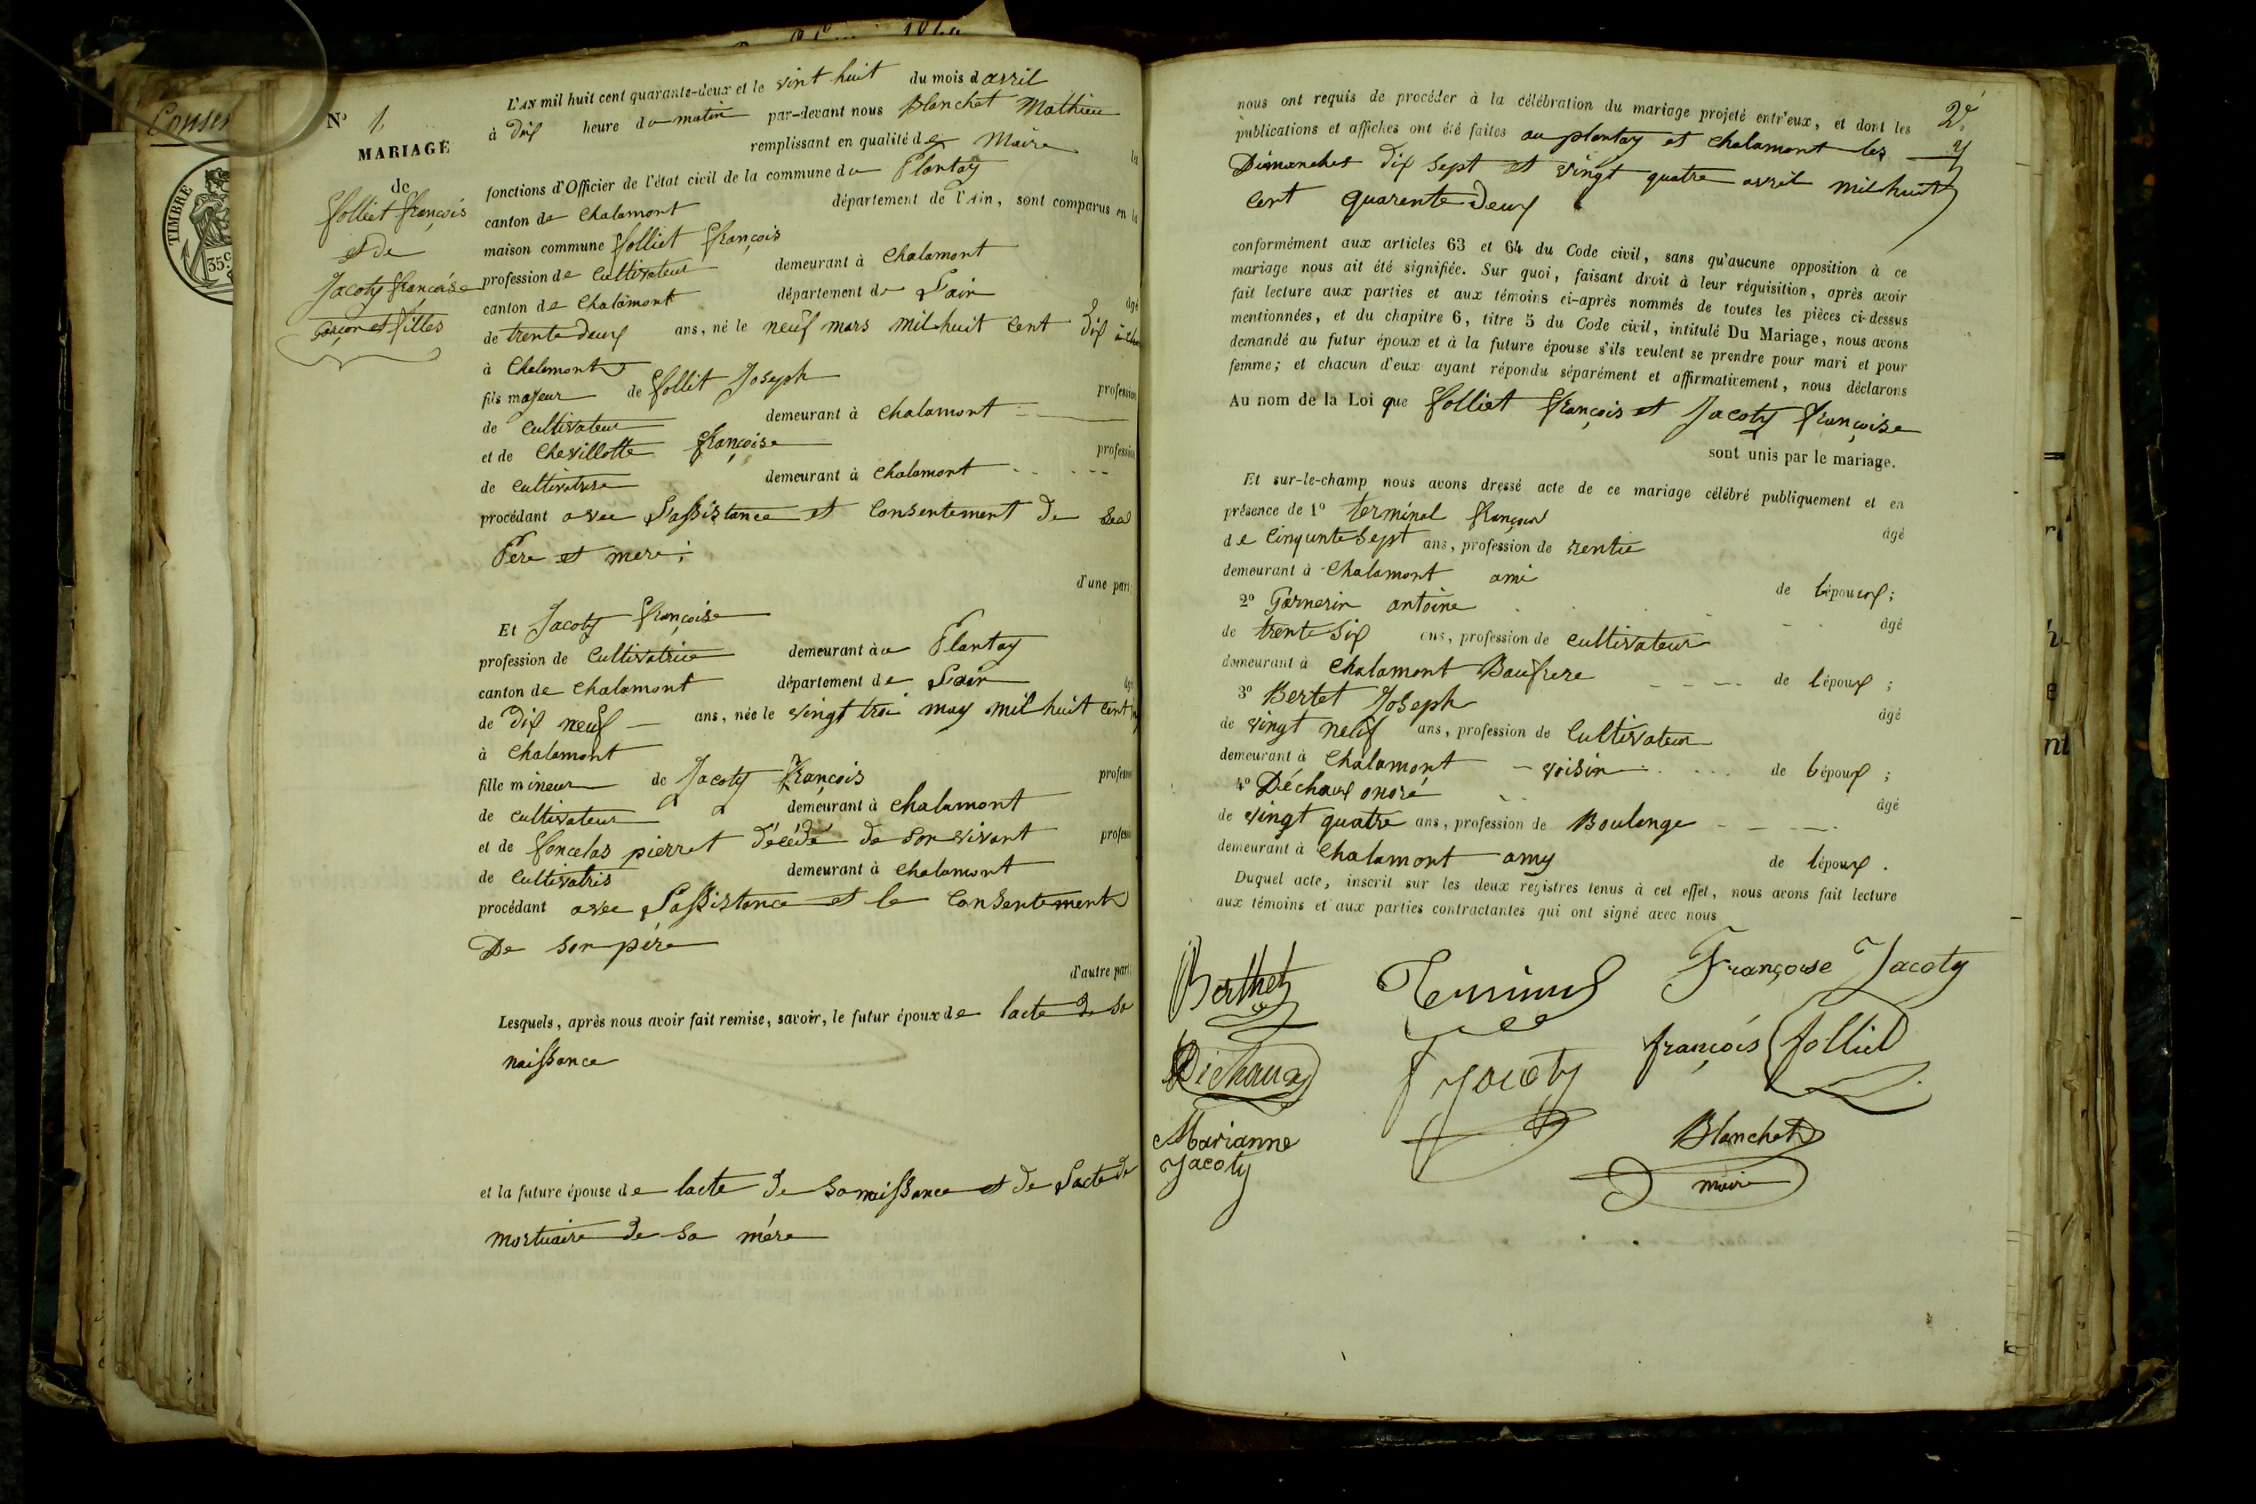 Conser
TIMBRE
35 c
N° 1.
MARIAGE
de
folliet françois
et de
Jacoty françoise
garçon et filles
L'AN mil huit cent quarante-deux et le vint huit du mois d avril
à dix heure du matin par-devant nous Blanchet Mathieu
remplissant en qualité de Maire la
fonctions d'Officier de l'état civil de la commune du Plantay
canton de chalamont département de l'Ain, sont comparus en la
maison commune folliet françois
profession de cultivateur demeurant à chalamont
canton de chalamont département de L'ain âgé
de trente deux ans, né le neuf mars mil huit cent dix
à chalamont
fils majeur de follit Joseph profession
de cultivateur demeurant à chalamont
et de chevillotte françoise profession
de cultivatrise demeurant à chalamont
procédant avec L'assistance et Consentement de ses
Pere et mere;
d'une part
Et Jacoty françoise
profession de Cultivatrice demeurant à u Plantay
canton de chalamont département de L'ain
de dix neuf ans, née le vingt troi may mil huit cent
à chalamont
fille mineur de Jacoty françois profession
de cultivateur demeurant à chalamont
et de foncelas pierret décédé de son vivant profession
de cultivatris demeurant à chalamont
procédant avec L'assistance et le Consentement
De son père
d'autre part
Lesquels, après nous avoir fait remise, savoir, le futur époux de lacte de sa
naissance
et la future épouse de lacte de sa naissance et de Lacte de
mortuaire de sa mére
2e
nous ont requis de procéder à la célébration du mariage projeté entr'eux, et dont les
publications et affiches ont été faites au plantay et chalamont les
Dimanches dix sept et vingt quatre avril mil huit
cent quarente deux
conformément aux articles 63 et 64 du Code civil, sans qu'aucune opposition à ce
mariage nous ait été signifiée. Sur quoi, faisant droit à leur réquisition, après avoir
fait lecture aux parties et aux témoins ci-après nommés de toutes les pièces ci-dessus
mentionnées, et du chapitre 6, titre 5 du Code civil, intitulé Du Mariage, nous avons
demandé au futur époux et à la future épouse s'ils veulent se prendre pour mari et pour
femme; et chacun d'eux ayant répondu séparément et affirmativement, nous déclarons
Au nom de la Loi que folliet françois et Jacoty françoise
sont unis par le mariage.
Et sur-le-champ nous avons dressé acte de ce mariage célébré publiquement et en
présence de 1° terminal françois
âgé
de cinquante sept ans, profession de rentie
demeurant à chalamont ami de l'époux;
2° Garnerin antoine
âgé
de trente six ans, profession de cultivateur
demeurant à chalamont Baufrere de l'époux;
3° Bertet Joseph
âgé
de vingt neuf ans, profession de Cultivateur
demeurant à chalamont voisin de l'époux;
4° Déchaux onoré
âgé
de vingt quatre ans, profession de Boulenge
demeurant à chalamont amy de l'époux.
Duquel acte, inscrit sur les deux registres tenus à cet effet, nous avons fait lecture
aux témoins et aux parties contractantes qui ont signé avec nous
Berthet Françoise Jacoty
Dichaux Jacoty françois folliet
Marianne Blanchet
Jacoty maire